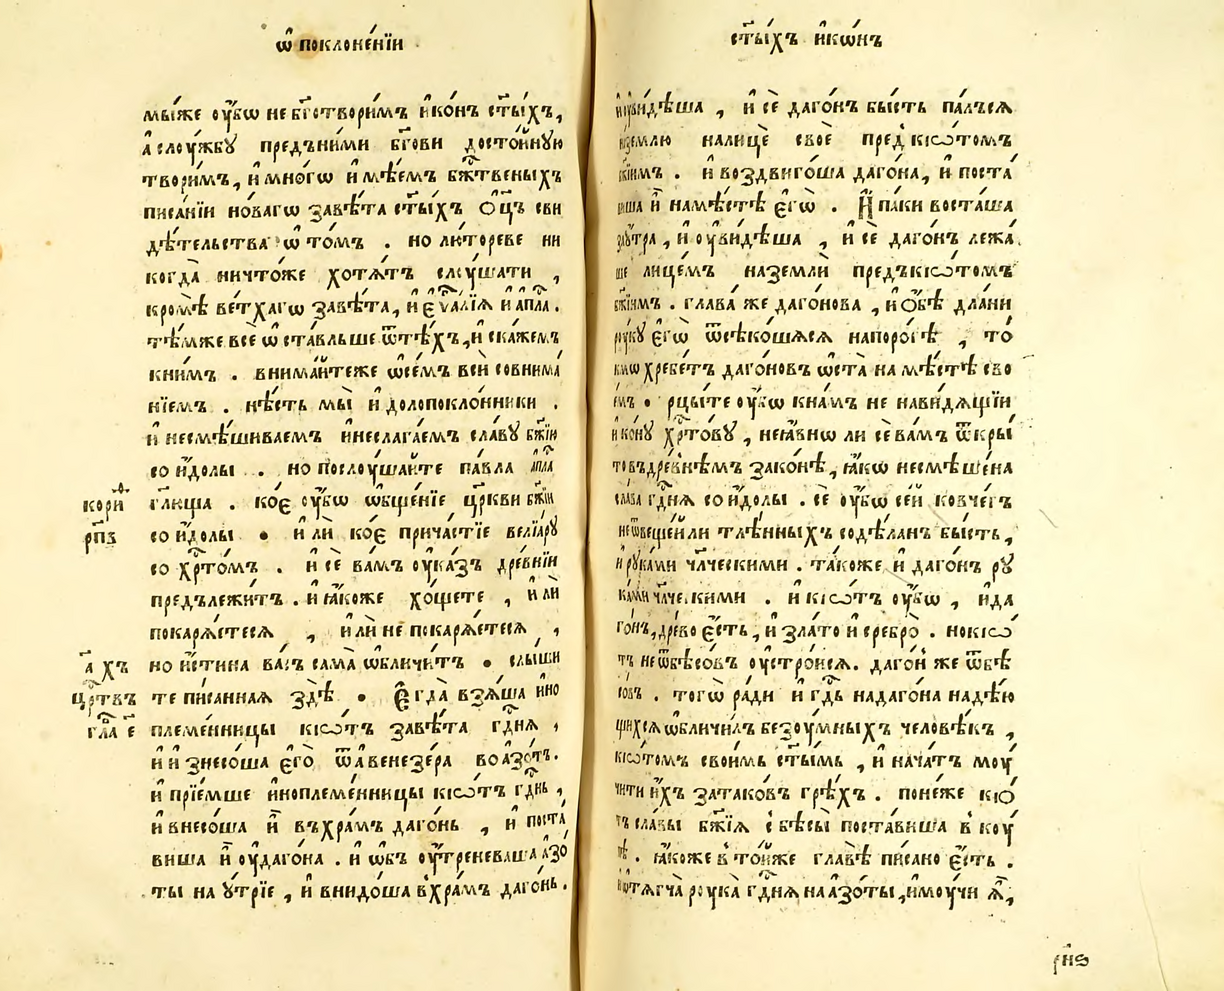 ѿ поклоне́нїи
мы́же оу҆́бѡ не бг҃отвори́мъ и҆ко́нъ ст҃ы́хъ,
а҆ слоу́жбꙋ предъни́ми бг҃ови досто́йнꙋю
твори́мъ, и҆ мно́гѡ и҆мѣ́емъ бж҃твеныхъ
писа́нїи но́вагѡ завѣ́та ст҃ы́хъ ѻ҆ц҃ъ сви
дѣ́тельства ѡ҆ то́мъ . но лю́тореве ни
когда̀ ничто́же хотѧ́тъ слоу́шати ,
кро́мѣ ве́тхагѡ завѣ́та, и҆ е҆ѵⷢ҇а́лїѧ и҆ а҆п҃ла .
тѣ́мже всѐ ѡ҆ста́вльше ѿ тѣ́хъ, и҆ ска́жемъ
кни́мъ . внима́йтеже ѡ҆се́мъ всѝ совнима́
нїемъ . нѣ́сть мы̀ и҆долопокло́нники .
и҆ несмѣ́шиваемъ и҆неслага́емъ сла́вꙋ бж҃їи
со и҆́долы . но послоу́шайте па́вла а҆п҃ла
кори́ѳ
гл҃юща . ко́е оу҆́бѡ ѡ҆бще́нїе цр҃кви бж҃їи
рп҃з
со и҆́долы • и҆ лѝ ко́е прича́стїе велїа́рꙋ
со хрⷭ҇то́мъ . и҆ сѐ ва́мъ оу҆ка́зъ дре́внїи
предълежи́тъ . и҆ ꙗ҆́коже хо́щете , и҆ лѝ
покарѧ́етесѧ , и҆ лѝ не покарѧ́етесѧ ,
а҃ хъ
но и҆́стина ва́съ сама̀ ѡ҆бличи́тъ • слы́ши
црⷭ҇твъ
те пи́санная здѣ̀ • Е҆гда̀ взѧ́ша и҆но
гла е҃
племе́нницы кїѡ́тъ завѣ́та гдⷭ҇нѧ ,
и҆ и҆знесо́ша е҆го̀ ѿ авенезе́ра во азо́тъ.
и҆ прїе́мше и҆ноплеме́нницы кїѡ́тъ гдⷭ҇нь ,
и҆ внесо́ша и҆̀ въхра́мъ даго́нь , и҆ поста́
виша и҆̀ оу҆даго́на . и҆ ѡ҆бъ оу҆́треневаша а҆зо́
ты на ꙋ҆́трїе , и҆ внидо́ша вхра́мъ даго́нь .
ст҃ы́хъ и҆кѡ́нъ
и҆ оу҆ви́дѣша , и҆ сѐ даго́нъ бы́сть па́лъсѧ
налицѐ своѐ пред̾ кїѡ́томъ
бж҃їимъ . и҆ воздвиго́ша даго́на, и҆ поста́
виша и҆̀ намѣ́стѣ е҆гѡ̀ . И҆ па́ки воста́ша
заоу́тра , и҆ оу҆ви́дѣша , и҆ сѐ даго́нъ лежа́
ше лице́мъ наземлѝ предъкїѡ́томъ
бж҃їимъ . глава́ же даго́нова , и҆ ѻ҆́бѣ дла́ни
рꙋкꙋ е҆гѡ̀ ѿсѣко́шѧсѧ напоро́гѣ , то́
кмѡ хребе́тъ даго́новъ ѡ҆ста̀ на мѣ́стѣ сво
е́мъ • рцы́те оу҆́бѡ кна́мъ не нави́дѧщїи
и҆ко́нꙋ хрⷭ҇то́вꙋ , неꙗ҆́внѡ ли сѐ ва́мъ ѿкры́
то въдре́внемъ зако́нѣ, ꙗ҆́кѡ несмѣше́на
сла́ва гдⷭ҇нѧ со и҆́долы . сѐ оу҆́бѡ се́й ковче́гъ
не ѿ веще́й ли тлѣ́нныхъ содѣ́ланъ бы́сть ,
и҆ рꙋка́ми чл҃ческими . та́коже и҆ даго́нъ рꙋ
ка́ми чл҃ческими . и҆ кїѡ́тъ оу҆́бѡ , и҆ да
го́нъ, дре́во е҆́сть, и҆ зла́то и҆ сребро̀ . но кїѡ́
тъ не ѿ бѣсо́въ оу҆стро́исѧ . даго́н же ѿ бѣ
со́въ . тогѡ̀ ра́ди и҆ гдⷭ҇ь надаго́на надѣ́ю
щихсѧ ѡ҆бличи́лъ безоу́мныхъ человѣ́къ ,
кїѡ́томъ свои́мъ ст҃ы́мъ , и҆ нача́тъ моу́
чити и҆́хъ затако́въ грѣ́хъ . поне́же кїѻ́
тъ сла́вы бж҃їѧ с̾ бѣсы̀ поста́виша в̾ коу́
пѣ . ꙗ҆́коже в̾ то́йже главѣ̀ пи́сано е҆́сть .
и҆ ѡ҆тѧгча̀ роука̀ гдⷭ҇нѧ на азо́ты , и҆моу́чи ѧ҆̀,
рн҃ѕ